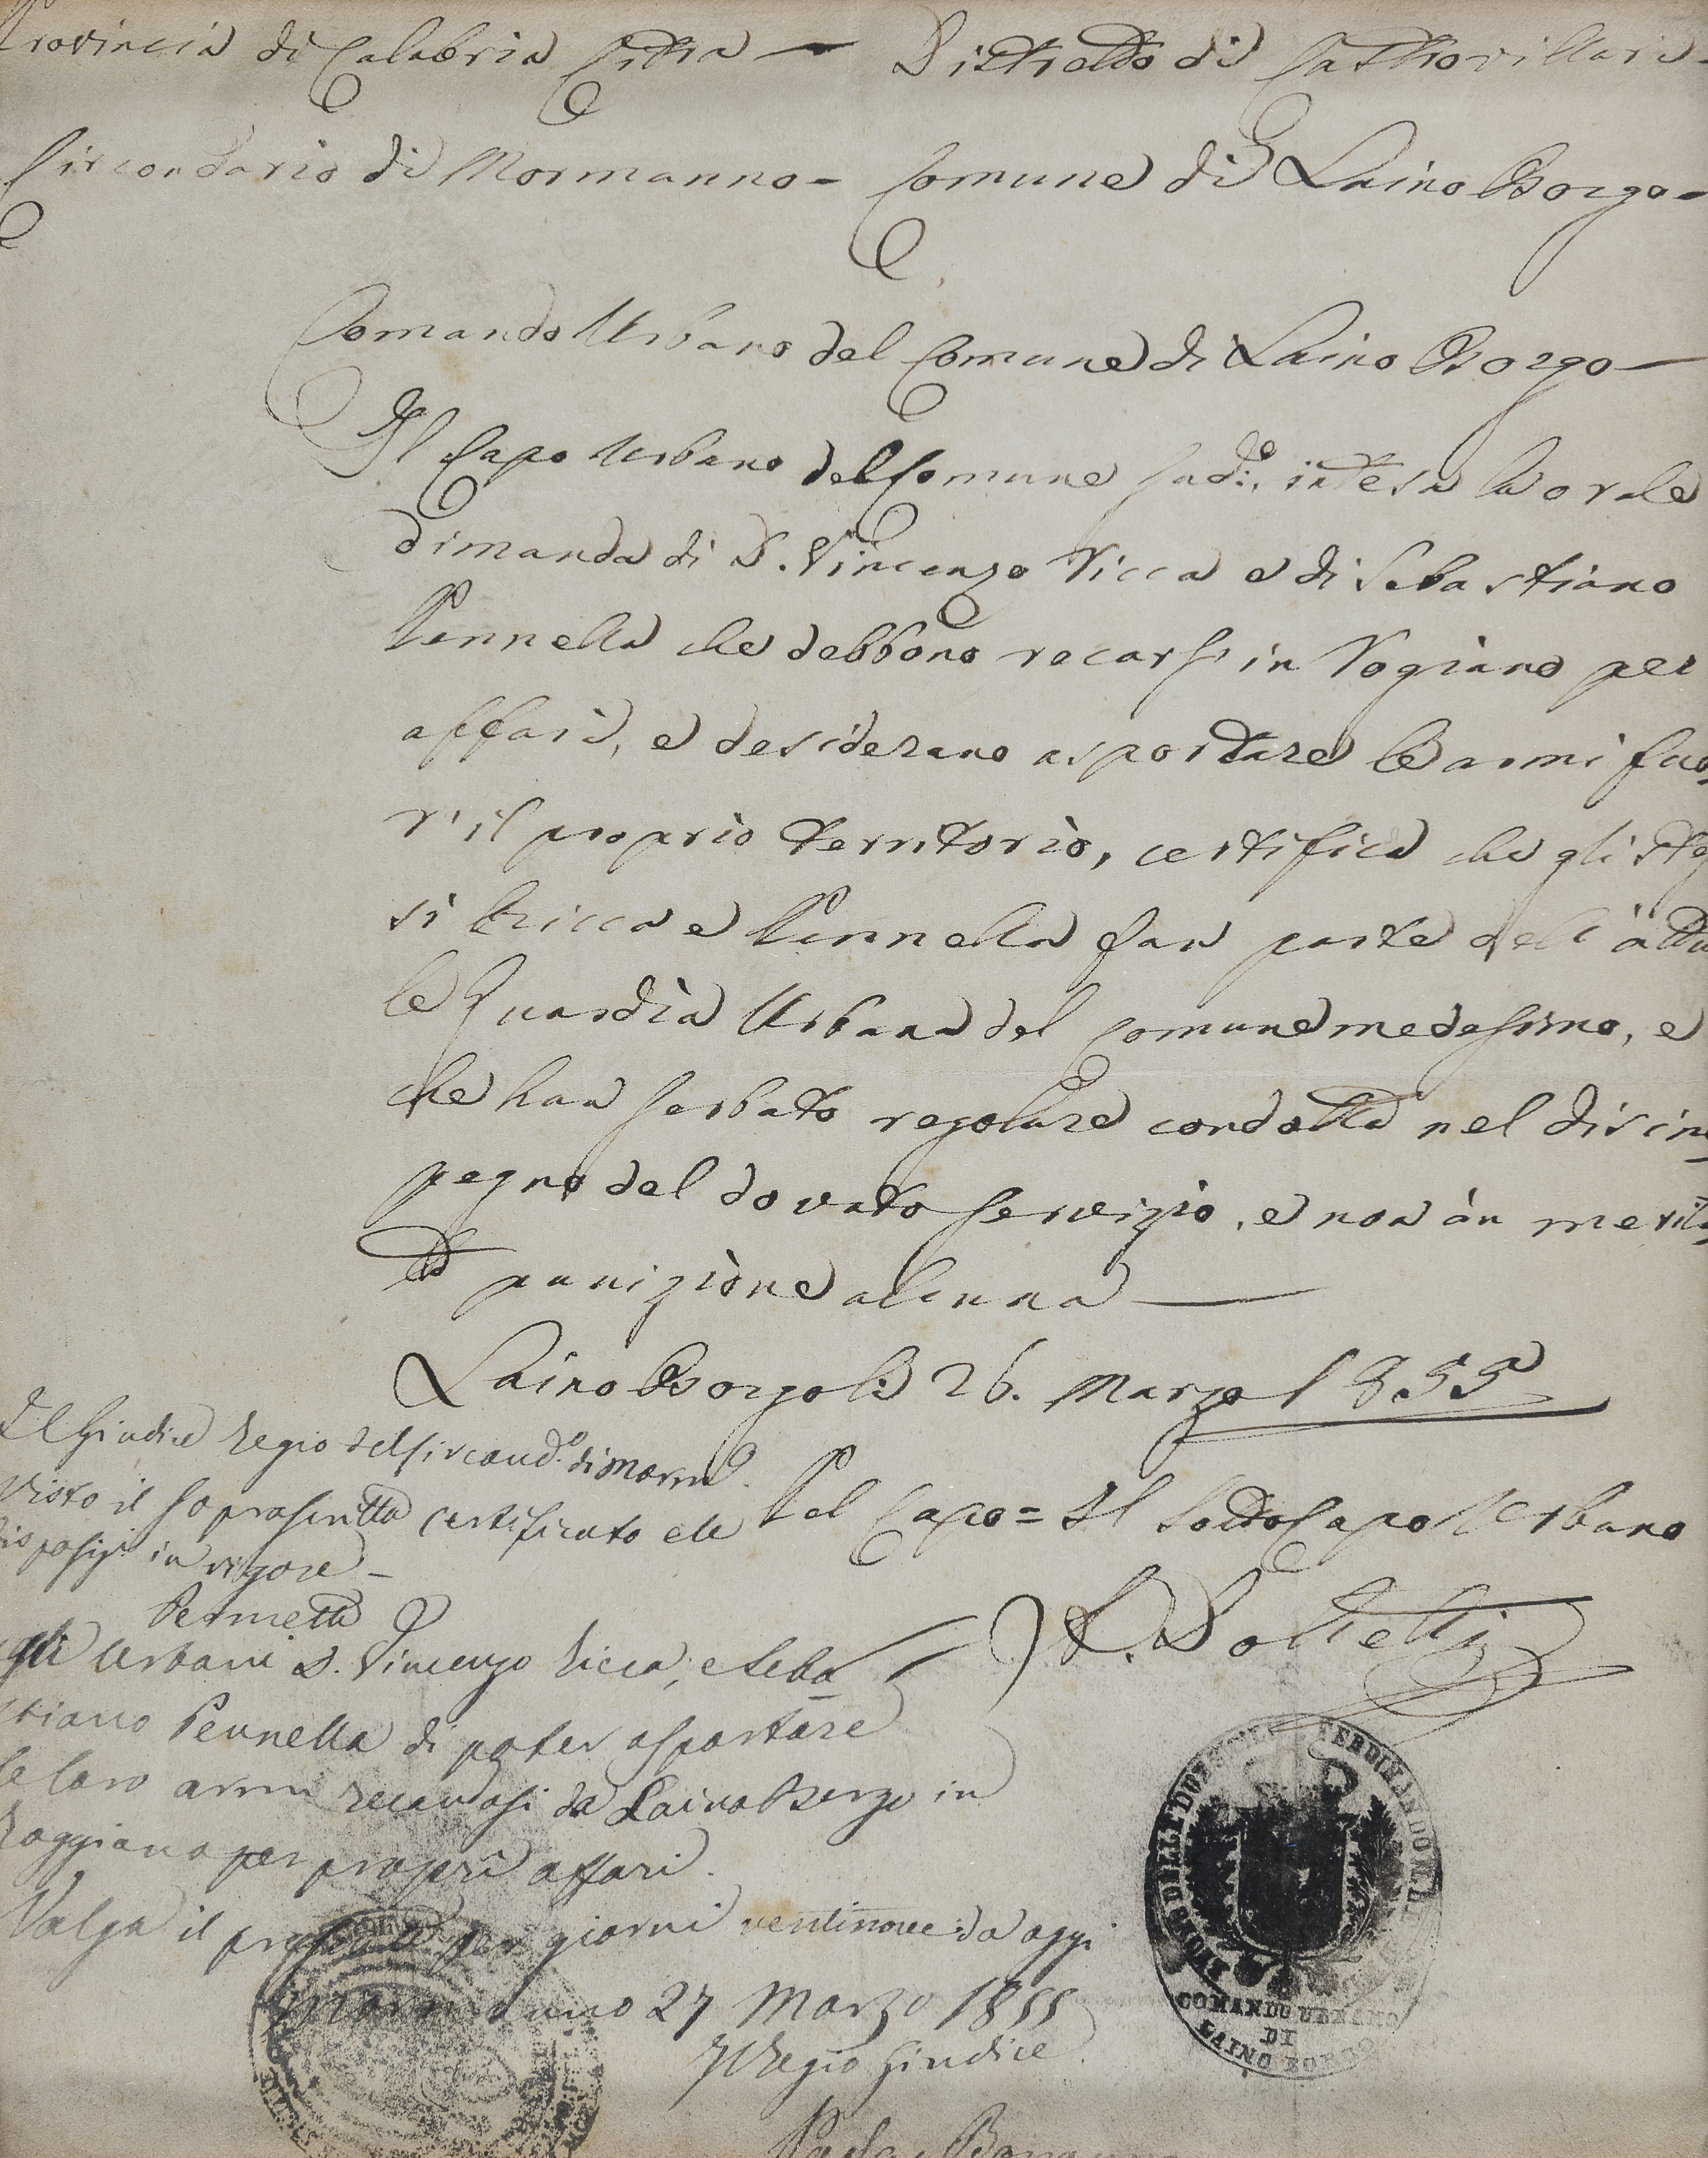 Provincia di Calabria Citra — Distretto di Castrovillari -
Circondario di Mormanno - Comune di Laino Borgo -
Comando Urbano del Comune di Laino Borgo —
Il Capo Urbano del Comune sud:º, intesa la orale
dimanda di D. Vincenzo Ricca e di Sebastiano
Pennella che debbono recarsi in Rogiano per
affari, e desiderano asportare le armi fuo
ri il proprio territorio, certifica che gli stes
si Ricca e Pennella fan parte dell'attua
le Guardia Urbana del comune medesimo, e
che han serbato regolare condotta nel disim
pegno del dovuto servizio, e non àn merita
to punizione alcuna —
Laino Borgo li 26. Marzo 1855
Pel Capo = Il SottoCapo Urbano
Il Giudice Regio del Circond.º di Morm.º
Visto il soprascritto certificato e le
disposiz.i in vigore -
Permette
agli Urbani D. Vincenzo Ricca, e Seba
stiano Pennella di poter asportare
le loro armi recandosi da Laino Borgo in
Roggiano per proprî affari.
Valga il presente per giorni ventinove da oggi
Mormanno 27 Marzo 1855
Il Regio Giudice
FERDINANDO
COMANDO URBANO
DI
LAINO BORGO